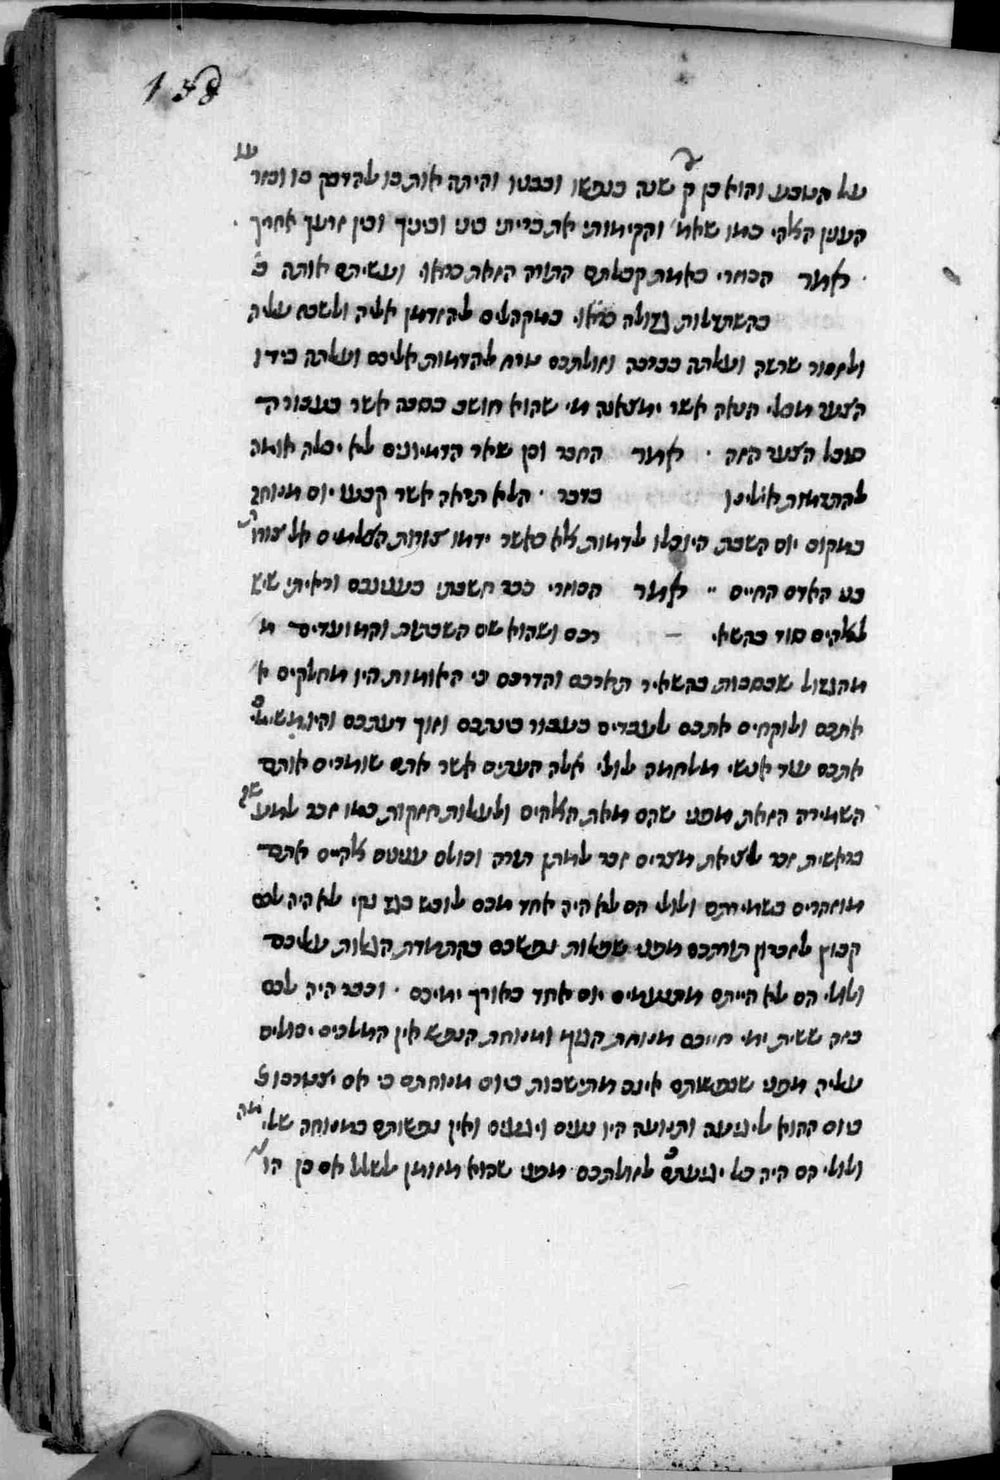 138
על הטבע והוא בן ק שנה בנפשו ובבנו והיתה אות בו להדבק בו ובזרעו
הענין האלהי כמו שאמ' והקימותי את בריתי ביני ובינך ובין זרעך אחריך .
אמר הכוזרי באמת קבלתם התורה הזאת כראוי ועשיתם אותה כ'
בהשתדלות גדולה כראוי במקהלים להזדמן אליה ולשבח עליה
ולזכור שרשה ועלתה בברכה וזולתכם טרח להדמות אליכם ועלתה בידו
הצער מבלי הנאה אשר ימצאנה מי שהוא חושב בסבה אשר בעבורה
סובל הצער הזה . אמר החבר וכן שאר הדמיונים לא יכלה אומה
להתדמות אלינו בדבר . הלא תראה אשר קבעו יום מנוחה
במקום יום השבת היוכלו לדמות אלא כאשר ידמו צורות הצלמים אל צורת
בני האדם החיים .. אמר הכוזרי כבר חשבתי בענינכם וראיתי שיש
לאלהים סוד בהשאי - רכם ושהוא שם השבתות והמועדים מ
מהגדול שבסבות בהשאיר תארכם והדרכם כי האומות היו מחלקים א
אתכם ולוקחים אתכם לעבדים בעבור בינתכם וזוך דעתכם והיו משימים
אתכם עוד אנשי מלחמה לולי אלה העתים אשר אתם שומרים אותם
השמירה הזאת מפני שהם מאת האלהים ולעלות חזקות כמו זכר למעשה
בראשית זכר ליציאת מצרים זכר למתן תורה וכולם ענינים אלהיים אתם
מוזהרים בשמירתם ולולי הם לא היה אחד מכם לובש בגד נקי לא היה לכם
קבוץ לזכרון תורתכם מפני שפלות נפשכם בהתמדת הגלות עליכם
ולולי הם לא הייתם מתענגים יום אחד באורך ימיכם . וכבר היה לכם
בזה ששית ימי חייכם מנוחת הגוף ומנוחת הנפש אין המלכים יכולים
עליה מפני שנפשותם אינם מתישבות ביום מנוחתם כי אם יצטרכו
ביום ההוא ליגיעה ותנועה היו נעים ויגעים ואין נפשותם במנוחה שלימה
ולולי הם היה כל יגיעתכם לזולתכם מפני שהוא מזומן לשלל אם כן הו'